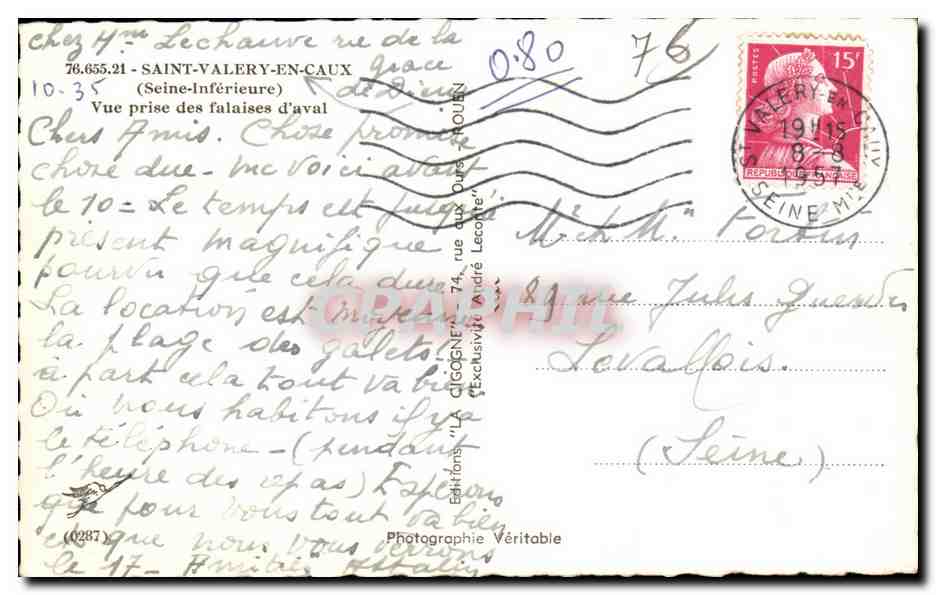 chez Mme Lechauve rue de la
grace
de Dieu
76.655.21 - SAINT-VALERY-EN-CAUX
(Seine-Inférieure)
Vue prise des falaises d'aval
10-35
0.80
76
Chers Amis. Chose promise
chose due - me voici avant
le 10 = Le temps est jusqu'à
présent magnifique
pourvu que cela dure!
La location est moyenne
la plage des galets!
à part cela tout va bien
Où nous habitons il y a
le téléphone - (pendant
l'heure des repas) Espérons
que pour vous tout va bien
et que nous vous verrons
le 17 - Amitiés
(0287)
Editions "LA CIGOGNE" - 74, rue aux Ours - ROUEN
"Exclusivité André Leconte"
Photographie Véritable
POSTES
15F
REPUBLIQUE FRANÇAISE
ST VALERY-EN-CAUX
19H15
8-8
1957
SEINE MME
Mr et Mme
89 rue Jules Guesde
Levallois.
(Seine)
CPAPHIL